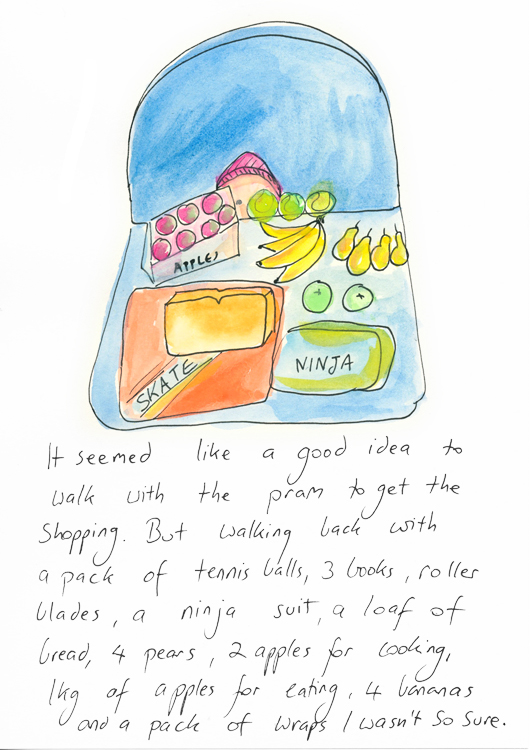 APPLES
SKATE
NINJA
It seemed like a good idea to
walk with the pram to get the
shopping. But walking back with
a pack of tennis balls, 3 books, roller
blades, a ninja suit, a loaf of
bread, 4 pears, 2 apples for cooking,
1kg of apples for eating, 4 bananas
and a pack of wraps I wasn't so sure.